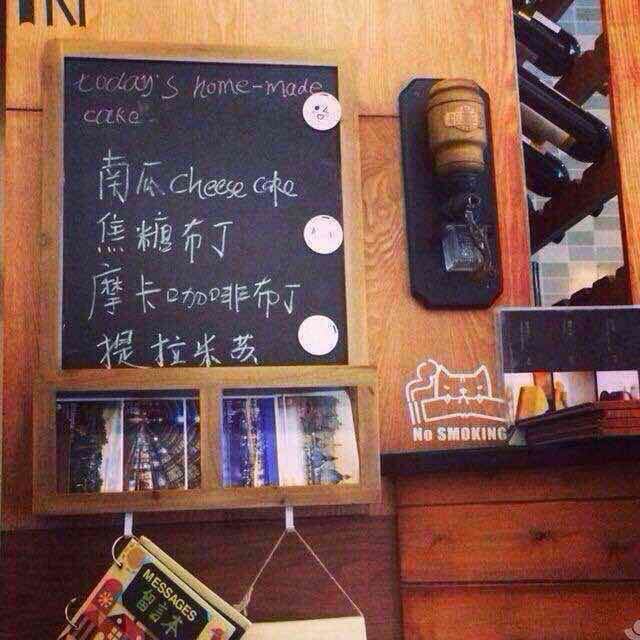 today's home-made
cake
南瓜 cheese cake
焦糖布丁
摩卡咖啡布丁
提拉米苏
No SMOKING
MESSAGES
留言本